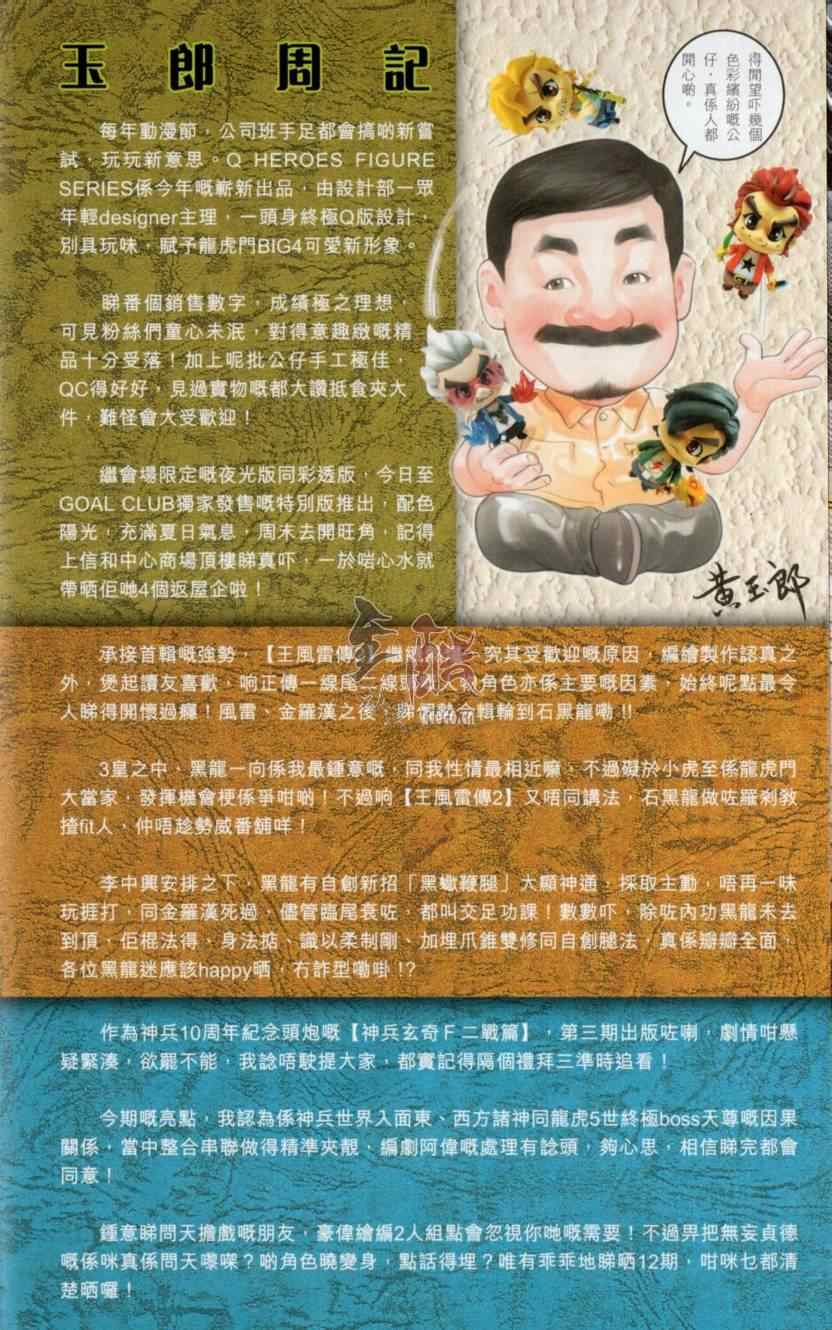 玉郎周記
得閒望吓幾個
色彩繽紛嘅公
仔，真係人都
開心啲。
每年動漫節，公司班手足都會搞啲新嘗
試，玩玩新意思。Q HEROES FIGURE
SERIES係今年嘅嶄新出品，由設計部一眾
年輕designer主理，一頭身終極Q版設計，
別具玩味，賦予龍虎門BIG4可愛新形象。
睇番個銷售數字，成績極之理想，
可見粉絲們童心未泯，對得意趣緻嘅精
品十分受落！加上呢批公仔手工極佳，
QC得好好，見過實物嘅都大讚抵食夾大
件，難怪會大受歡迎！
繼會場限定嘅夜光版同彩透版，今日至
GOAL CLUB獨家發售嘅特別版推出，配色
陽光，充滿夏日氣息，周末去開旺角，記得
上信和中心商場頂樓睇真吓，一於啱心水就
帶晒佢哋4個返屋企啦！
黃玉郎
承接首輯嘅強勢，【王風雷傳2】繼續
究其受歡迎嘅原因，編繪製作認真之
外，煲起讀友喜歡，响正傳一線尾二線頭
角色亦係主要嘅因素，始終呢點最令
人睇得開懷過癮！風雷、金羅漢之後，睇
今輯輪到石黑龍嘞!!
3皇之中，黑龍一向係我最鍾意嘅，同我性情最相近嘛，不過礙於小虎至係龍虎門
大當家，發揮機會梗係爭咁啲！不過响【王風雷傳2】又唔同講法，石黑龍做咗羅剎教
揸fit人，仲唔趁勢威番舖咩！
李中興安排之下，黑龍有自創新招「黑蠍鞭腿」大顯神通，採取主動，唔再一味
玩捱打，同金羅漢死過，儘管臨尾衰咗，都叫交足功課！數數吓，除咗內功黑龍未去
到頂，佢棍法得、身法掂、識以柔制剛、加埋爪錐雙修同自創腿法，真係瓣瓣全面，
各位黑龍迷應該happy晒，冇詐型嘞啩!?
作為神兵10周年紀念頭炮嘅【神兵玄奇F二戰篇】，第三期出版咗喇，劇情咁懸
疑緊湊，欲罷不能，我諗唔駛提大家，都實記得隔個禮拜三準時追看！
今期嘅亮點，我認為係神兵世界入面東、西方諸神同龍虎5世終極boss天尊嘅因果
關係，當中整合串聯做得精準夾靚，編劇阿偉嘅處理有諗頭，夠心思，相信睇完都會
同意！
鍾意睇問天擔戲嘅朋友，豪偉繪編2人組點會忽視你哋嘅需要！不過畀把無妄貞德
嘅係咪真係問天嚟㗎？啲角色曉變身，點話得埋？唯有乖乖地睇晒12期，咁咪乜都清
楚晒囉！